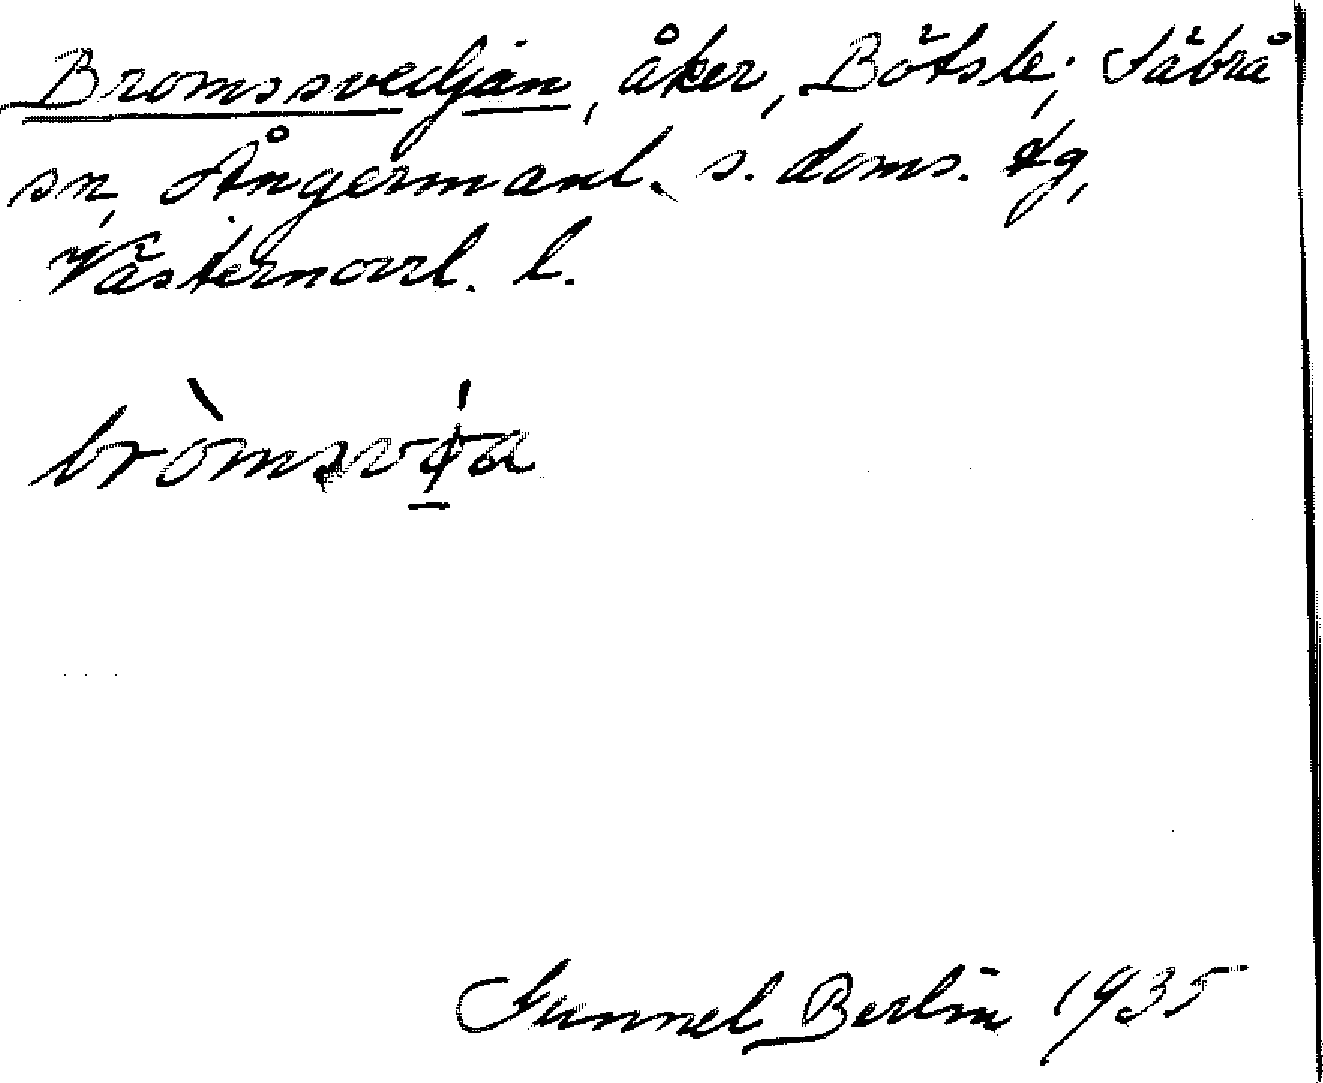 Bromssvedjan, åker, Bötsle, Säbrå
sn, Ångermanl. s. doms. tg,
Västernorrl. l.
Gunnel Berlin 1935